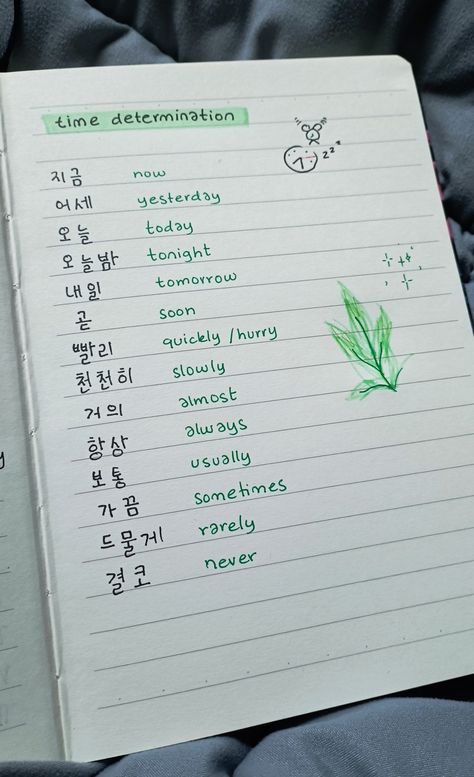 time determination
zzz
지금 now
어세 yesterday
오늘 today
오늘밤 tonight
내일 tomorrow
곧 soon
빨리 quickly / hurry
천천히 slowly
거의 almost
항상 always
보통 usually
가끔 sometimes
드물게 rarely
결코 never